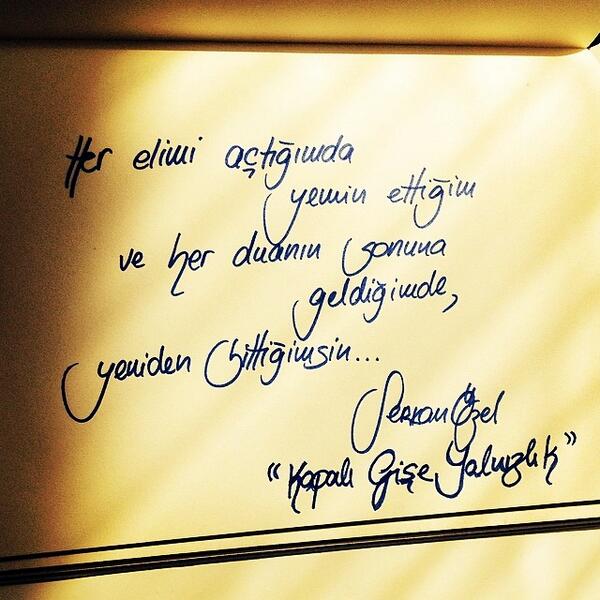 Her elimi açtığımda
yemin ettiğim
ve her duanın sonuna
geldiğimde,
yeniden bittiğimsin...
Serkan Özel
"Kapalı Gişe Yalnızlık"